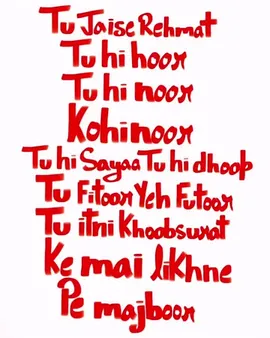 Tu Jaise Rehmat
Tu hi hoor
Tu hi noor
Kohinoor
Tu hi Sayaa Tu hi dhoop
Tu Fitoor Yeh Futoor
Tu itni Khoobsurat
Ke mai likhne
Pe majboor